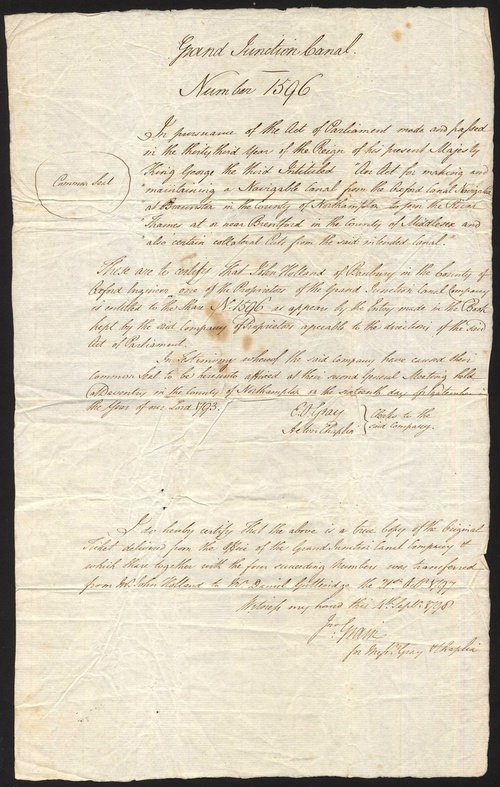 Grand Junction Canal.
Number 1596
In pursuance of the Act of Parliament made and passed
in the thirty third Year of the Reign of his present Majesty
King George the third Intituled "An Act for making and
Common Seal
maintaining a Navigable Canal from the Oxford Canal Navigation
at Braunston in the County of Northampton to join the River
"Thames at or near Brentford in the County of Middlesex and
also certain collateral Cuts from the said intended Canal."
These are to certify That John Holland of Banbury in the County of
Oxford one of the Proprietors of the Grand Junction Canal Company
is entitled to the Share No. 1596 as appears by the Entry made in the Book
kept by the said Company of Proprietors agreeable to the directions of the said
Act of Parliament.
In testimony whereof the said Company have caused their
Common Seal to be hereunto affixed at their second General Meeting held
at Daventry in the County of Northampton on the sixteenth day of September in
the Year of our Lord 1793.
Gray
Chaplin
} Clerks to the
said Company.
I do hereby certify That the above is a true Copy of the Original
Ticket delivered from the Office of the Grand Junction Canal Company &
which Share together with the four succeeding Numbers was transferred
from Mr. John Holland to Mr. Daniel Gutteridge the 1797
Witness my hand this 4th Septr. 1798
Grain
for Messrs. Gray & Chaplin